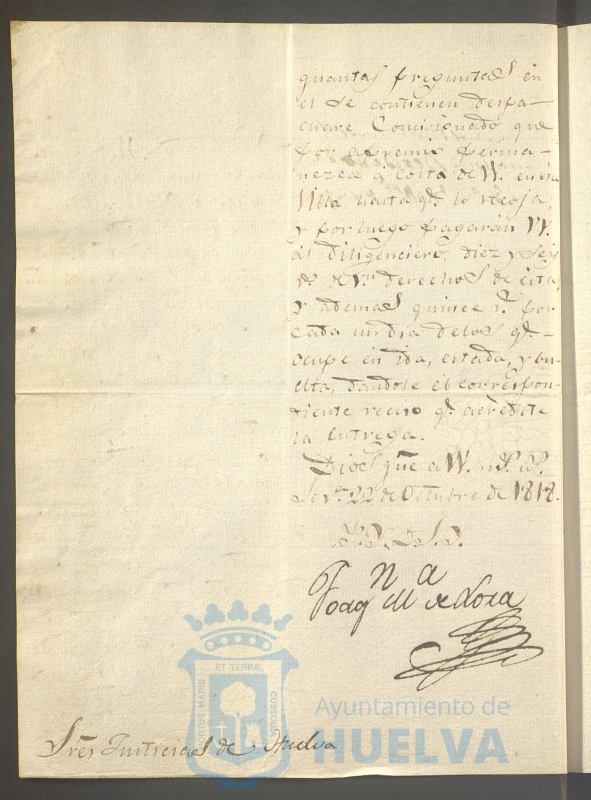 quantas preguntas en
el se contienen despa-
chare Comisionado que
por apremio perma-
nezca à costa de VV. en esa
Villa hasta qe. lo recoja,
y por luego pagarán VV.
al diligenciero, diez y seis
rs. de vn. derechos de esta,
y ademas quince rs. por
cada un dia de los qe.
ocupe en ida, estada, y bu-
elta, dandole el correspon-
diente recivo qe. acredite
la entrega.
Dios gue. a VV. ms. as.
Seva. 22 de Octubre de 1818.
Joaqn. Ma. de Lora
Sres Justicias de Huelva
PORTUS MARIS
ET TERRÆ
CUSTODIA
Ayuntamiento de
HUELVA